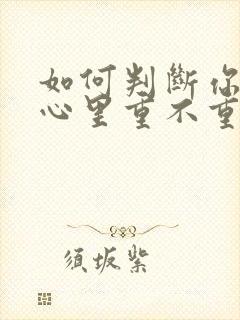 如何判斷你
心里重不重
須坂紫